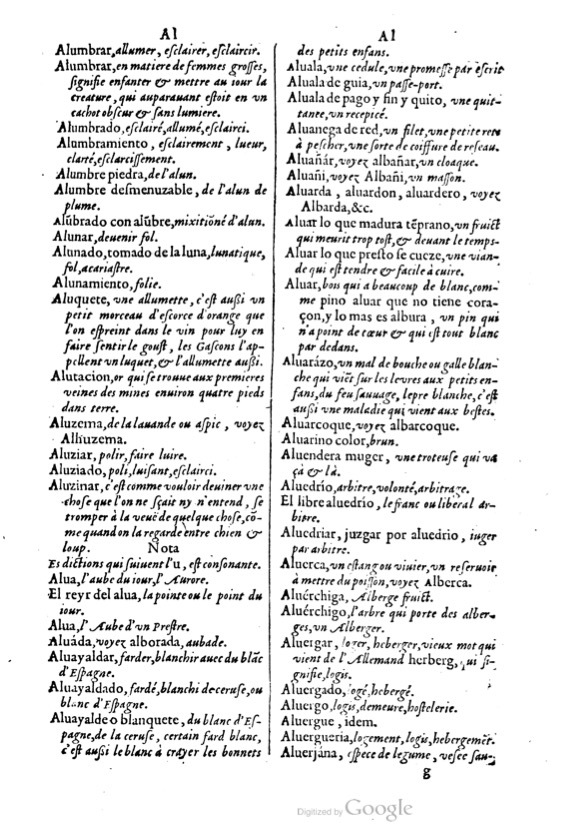 Al
Alumbrar, allumer, esclairer, esclaircir.
Alumbrar, en matiere de femmes grosses,
signifie enfanter & mettre au iour la
creature, qui auparauant estoit en vn
cachot obscur & sans lumiere.
Alumbrado, esclairé, allumé, esclairci.
Alumbramiento, esclairement, lueur,
clarté, esclarcissement.
Alumbre piedra, de l'alun.
Alumbre desmenuzable, de l'alun de
plume.
Alũbrado con alũbre, mixtiõné d'alun.
Alunar, deuenir fol.
Alunado, tomado de la luna, lunatique,
fol, acariastre.
Alunamiento, folie.
Aluquete, vne allumette, c'est aussi vn
petit morceau d'escorce d'orange que
l'on espreint dans le vin pour luy en
faire sentir le goust, les Gascons l'ap-
pellent vn luquet, & l'allumette aussi.
Alutacion, or qui se trouue aux premieres
veines des mines enuiron quatre pieds
dans terre.
Aluzema, de la lauande ou aspic, voyez
Alhuzema.
Aluziar, polir, faire luire.
Aluziado, poli, luisant, esclairci.
Aluzinar, c'est comme vouloir deuiner vne
chose que l'on ne sçait ny n'entend, se
tromper à la veuë de quelque chose, cõ-
me quand on la regarde entre chien &
loup. Nota
Es dictions qui suiuent l'u, est consonante.
Alua, l'aube du iour, l'Aurore.
El reyr del alua, la pointe ou le point du
iour.
Alua, l'Aube d'un Prestre.
Aluáda, voyez alborada, aubade.
Aluayaldar, farder, blanchir auec du blãc
d'Espagne.
Aluayaldado, fardé, blanchi de ceruse, ou
blanc d'Espagne.
Aluayalde o blanquete, du blanc d'Es-
pagne, de la ceruse, certain fard blanc,
c'est aussi le blanc à crayer les bonnets
Al
des petits enfans.
Aluala, vne cedule, vne promesse par escrit
Aluala de guia, vn passe-port.
Aluala de pago y fin y quito, vne quit-
tance, vn recepicé.
Aluanega de red, vn filet, vne petite rets
à pescher, vne sorte de coiffure de reseau.
Aluañár, voyez albañar, vn cloaque.
Aluañi, voyez Albañi, vn masson.
Aluarda, aluardon, aluardero, voyez
Albarda, &c.
Aluar lo que madura tẽprano, vn fruict
qui meurit trop tost, & deuant le temps.
Aluar lo que presto se cueze, vne vian-
de qui est tendre & facile à cuire.
Aluar, bois qui a beaucoup de blanc, com-
me pino aluar que no tiene cora-
çon, y lo mas es albura, vn pin qui
n'a point de cœur & qui est tout blanc
par dedans.
Aluarázo, vn mal de bouche ou galle blan-
che qui viẽt sur les levres aux petits en-
fans, du feu sauuage, lepre blanche, c'est
aussi vne maladie qui vient aux bestes.
Aluarcoque, voyez albarcoque.
Aluarino color, brun.
Aluendera muger, vne troteuse qui va
çà & là.
Aluedrío, arbitre, volonté, arbitrage.
El libre aluedrio, le franc ou liberal ar-
bitre.
Aluedriar, juzgar por aluedrio, iuger
par arbitre.
Aluerca, vn estang ou viuier, vn reseruoir
à mettre du poisson, voyez Alberca.
Aluérchiga, Alberge fruict.
Aluérchigo, l'arbre qui porte des alber-
ges, vn Alberger.
Aluergar, loger, heberger, vieux mot qui
vient de l'Allemand herberg, qui si-
gnifie, logis.
Aluergado, logé, hebergé.
Aluergo, logis, demeure, hostelerie.
Aluergue, idem.
Aluergueria, logement, logis, hebergemẽt.
Aluerjána, espece de legume, vesce sau-
g
Digitized by Google